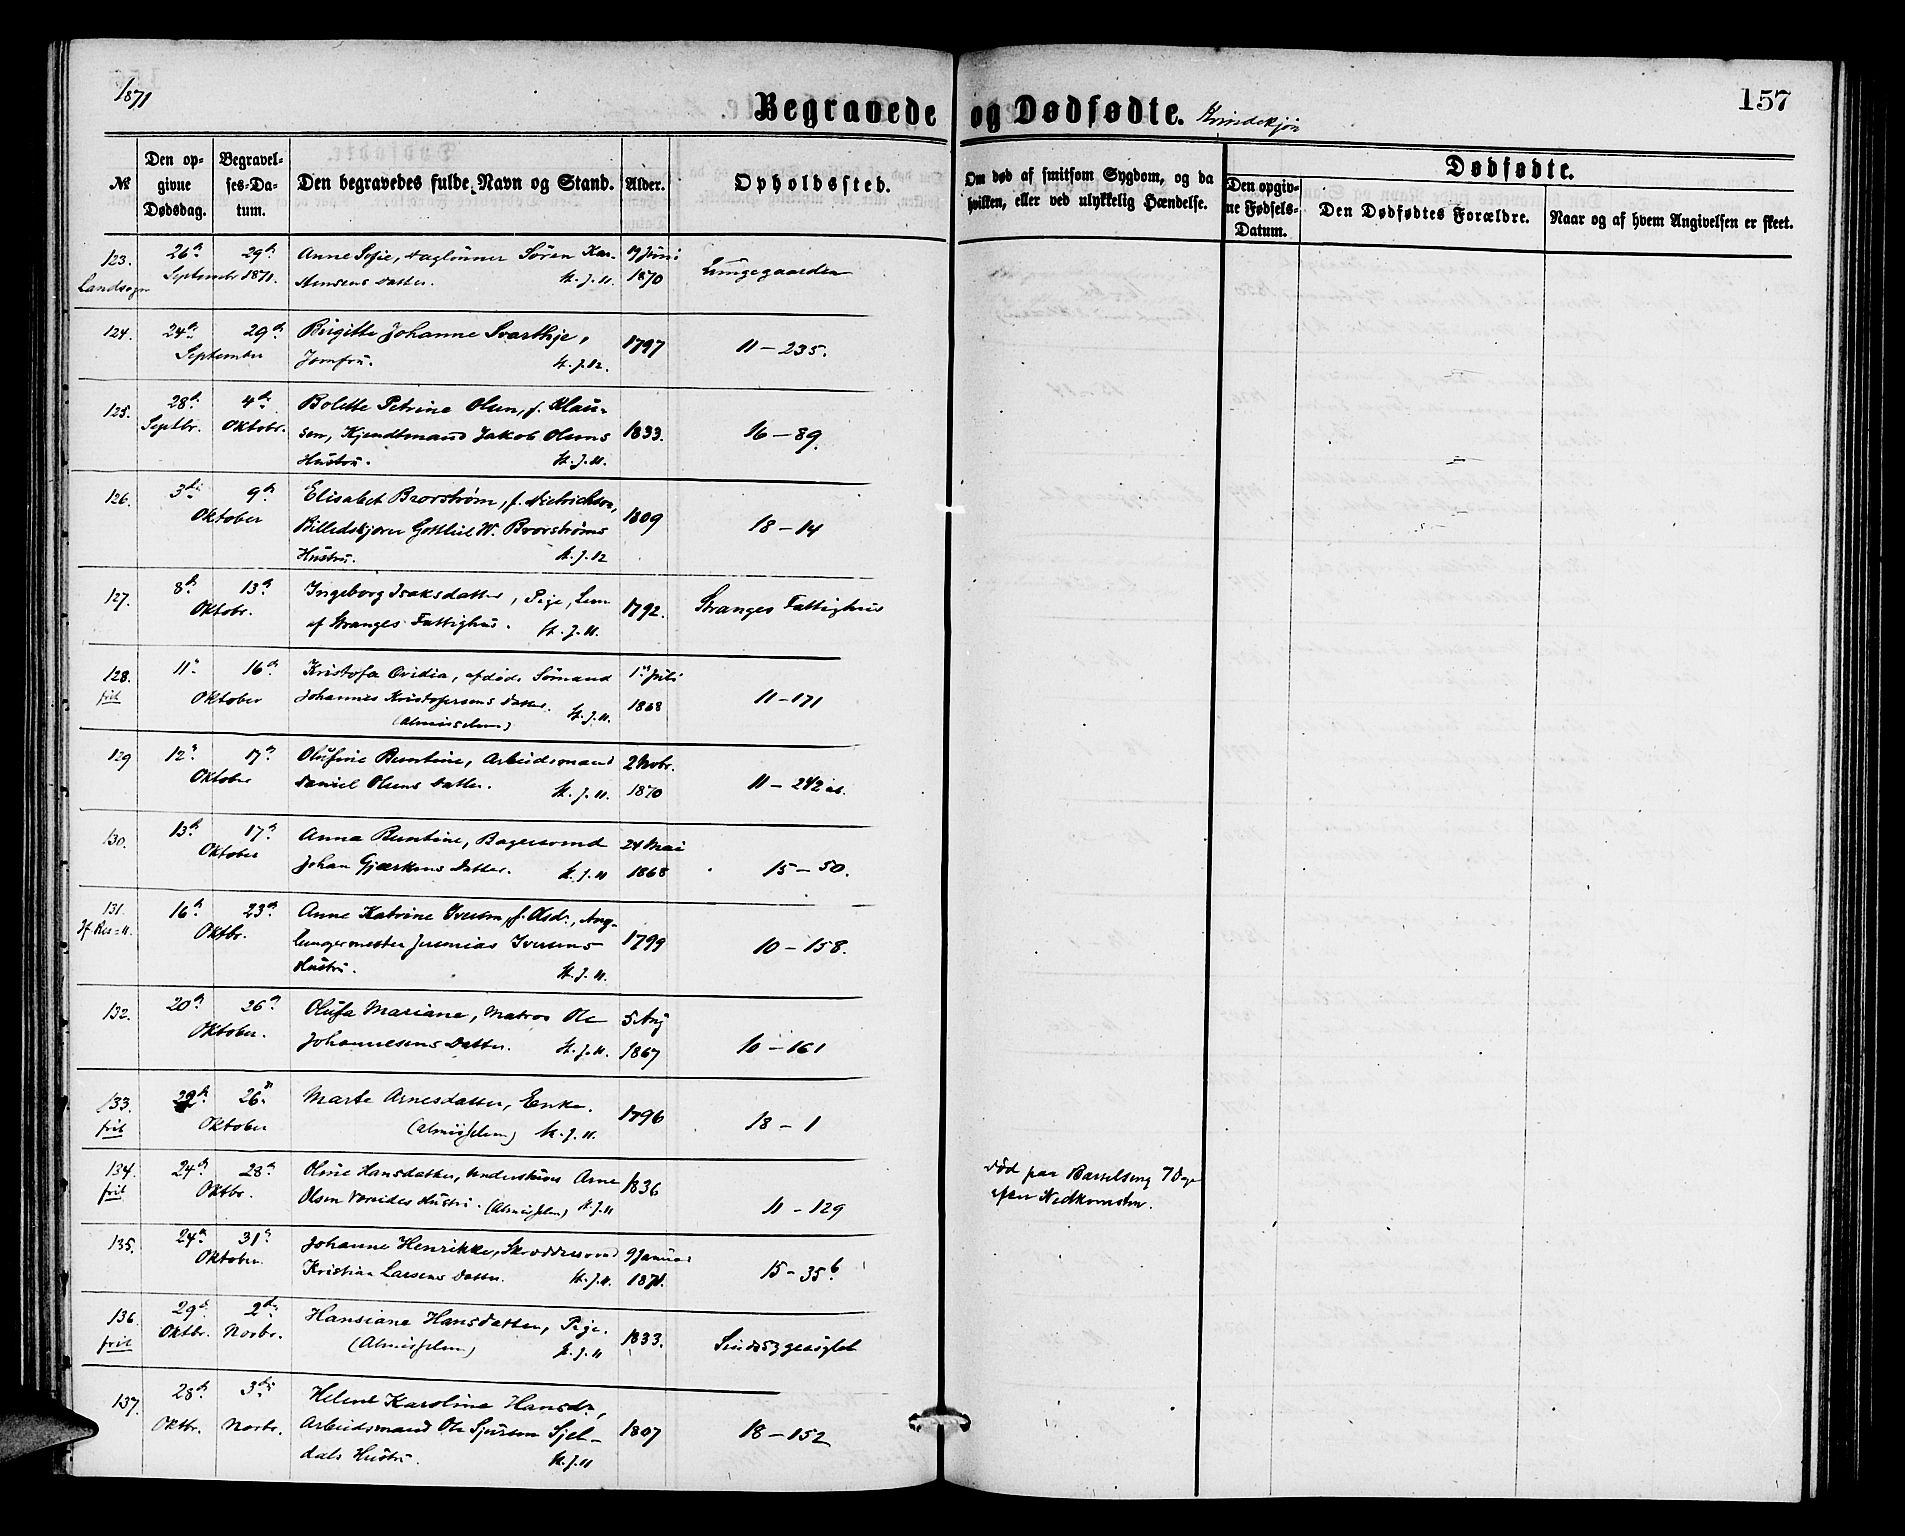 1871
Begravede og Dødfødte. Kvindekjøn
157
№
Den opgivne Dødsdag.
Begravelses-Datum.
Den begravedes fulde Navn og Stand.
Alder.
Opholdssted.
Om død af smitsom Sygdom, og da hvilken, eller ved ulykkelig Hændelse.
Dødfødte.
Den opgivne Fødsels-Datum.
Den Dødfødtes Forældre.
Naar og af hvem Angivelsen er skeet.
123. 26de 29de Anne Sofie, Daglønner Søren Kar- 17 Juni
Landsogn September 1871. stensens Datter. St. J. 11. 1870 Lungegaarden
124. 24de 29de Brigitte Johanne Svarthje,
September Jomfru. St. J. 12. 1797 11 - 235.
125. 28de 4de Bolette Petrine Olsen, f. Klau-
Septbr. Oktobr. sen, Kjendtmand Jakob Olsens 1833. 16 - 89.
Hustru. St. J. 11.
126. 3die 9de Elisabet Brorstrøm, f. Dietrichson,
Oktober Billedskjærer Gottlieb W. Brorstrøms 1809 18 - 14
Hustru. St. J. 12
127. 8de 13de Ingeborg Isaksdatter, Pige, Lem
Oktobr. af Stranges Fattighus. St. J. 11. 1792. Stranges Fattighus
128. 11te 16de Kristofa Ovidia, afdøde Sømand 1ste Juli
frit Oktober Johannes Kristofersens Datter. St. J. 11. 1868 11 - 171
129 12te 17de Olufine Berntine, Arbeidsmand 2 Novbr.
Oktober Daniel Olsens Datter. St. J. 11. 1870 11 - 242
130. 13de 17de Anna Berntine, Bagersvend 24 Mai
Oktober Johan Gjærkens Datter. St. J. 11 1868 15 - 50.
131. 16de 23de Anne Katrine Iversen, f. Olsdr,
Oktbr. Jeremias Iversens 1799 10 - 158.
Hustru. St. J. 11.
132. 20de 26de Olufa Mariane, Matros Ole 5 Aug
Oktober. Johannesens Datter. St. J. 11. 1867 10 - 161
133. 22de 26de Marte Arnesdatter, Enke. 1796
frit Oktober St. J. 11. 18 - 1
134. 24de 28de Oline Hansdatter, Arne 1836 død paa Barselseng 7 Dage
frit Oktbr. Olsen Hustru. St. J. 11 11 - 129 efter Nedkomsten.
135. 24de 31te Johanne Henrikke, Skræddersvend 9 Januar
Oktober. Kristian Larsens Datter. St. J. 11. 1871. 15 - 35b
136. 29de 2den Hansiane Hansdatter, Pige.
frit Oktbr. Novbr. St. J. 11 1833. Sindssygeasylet
137. 28de 3die Helene Karoline Hansdr,
Oktbr. Novbr. Arbeidsmand Ole Sjursen Sjel- 1807 18 - 152
dals Hustru. St. J. 11